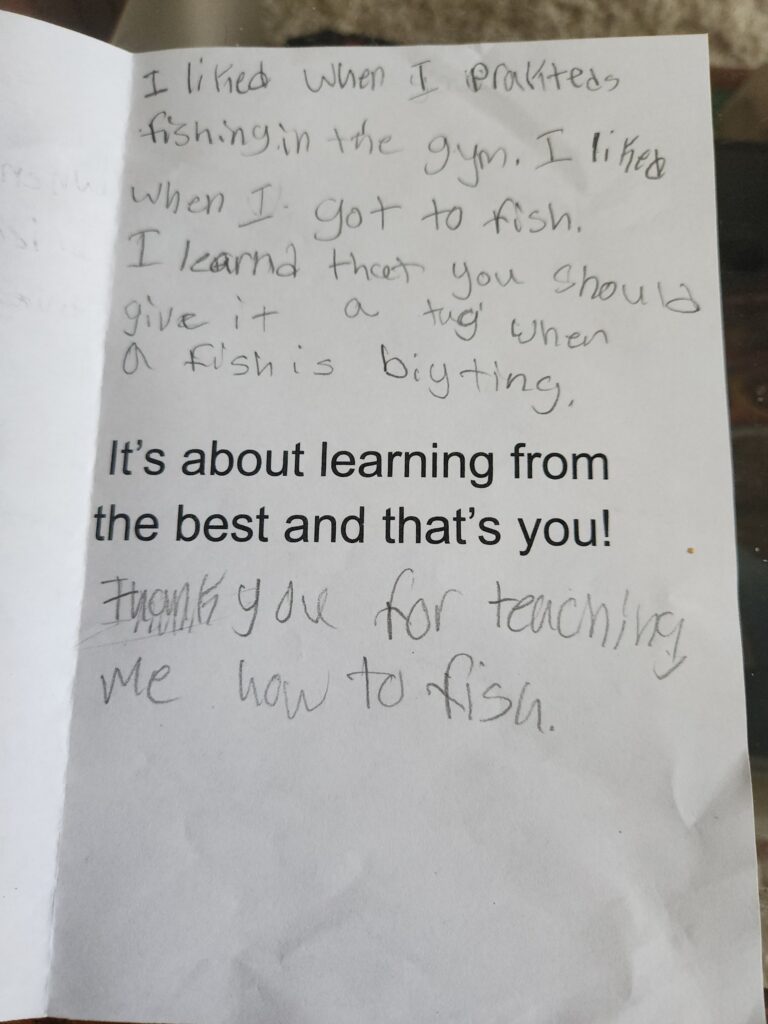 I liked when I prakteds
fishing in the gym. I liked
when I got to fish.
I learnd that you should
give it a tug when
a fish is biyting.
It's about learning from
the best and that's you!
Thank you for teaching
me how to fish.